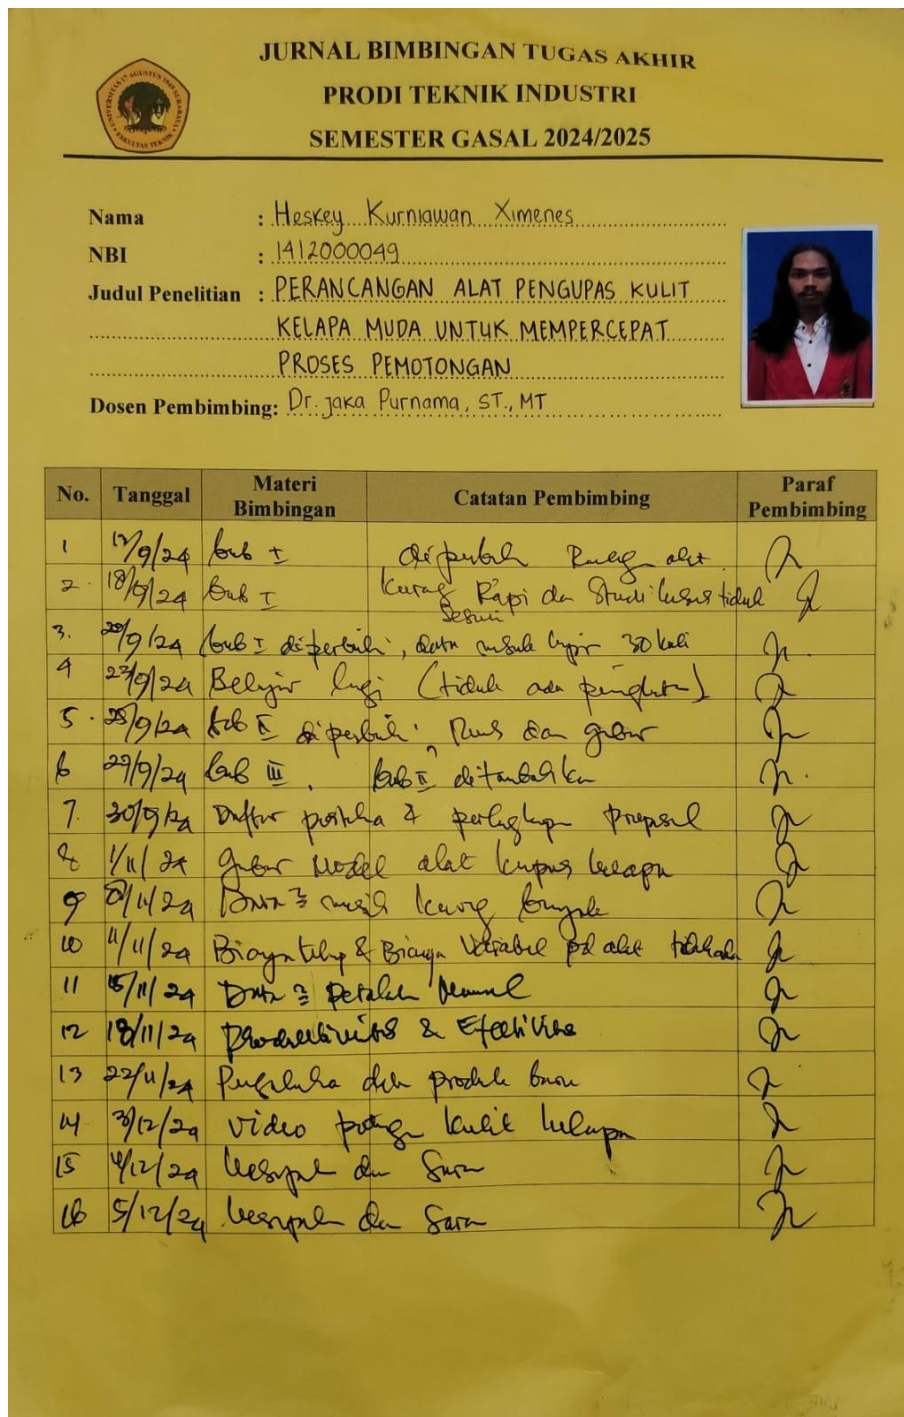 JURNAL BIMBINGAN TUGAS AKHIR
PRODI TEKNIK INDUSTRI
SEMESTER GASAL 2024/2025
UNIVERSITAS 17 AGUSTUS 1945 SURABAYA
FAKULTAS TEKNIK
Nama : Heskey Kurniawan Ximenes
NBI : 1412000049
Judul Penelitian : PERANCANGAN ALAT PENGUPAS KULIT
KELAPA MUDA UNTUK MEMPERCEPAT
PROSES PEMOTONGAN
Dosen Pembimbing: Dr. jaka Purnama, ST., MT
No. Tanggal Materi Bimbingan Catatan Pembimbing Paraf Pembimbing
1 /9/24 bab I alat
2. 18/9/24 bab I Kurang Rapi dan Studi kasus tidak
Sesuai
3. /9/24 bab I diperbaiki, data 30 kali
4 /9/24 Belajar lagi (tidak ada )
5. /9/24 bab II diperbaiki, Rumus dan gambar
6 29/9/24 bab III, bab II ditambahkan
7. 30/9/24 Daftar pustaka & perlengkapan proposal
8 1/11/24 gambar Model alat kupas kelapa
9 8/11/24 Data2 masih kurang banyak
10 11/11/24 Biaya tetap & Biaya Variabel pd alat
11 15/11/24 Data2 Manual
12 18/11/24 Produktivitas & Efektivitas
13 22/11/24 produk baru
14 3/12/24 video potong kulit kelapa
15 4/12/24 kesimpulan dan Saran
16 5/12/24 kesimpulan dan Saran